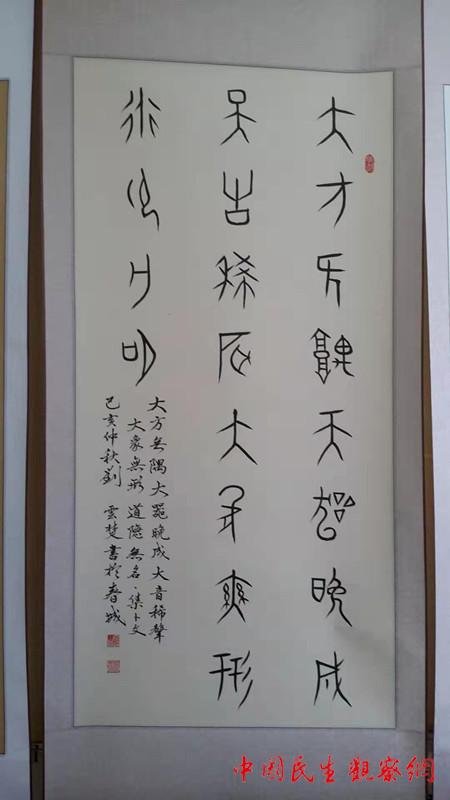 大方无隅大器晚成
大音稀聲大象無形
道隱無名
大方無隅大器晚成大音稀聲
大象無形道隱無名·集卜文
己亥仲秋劉雲楚書於春城
中国民生觀察網